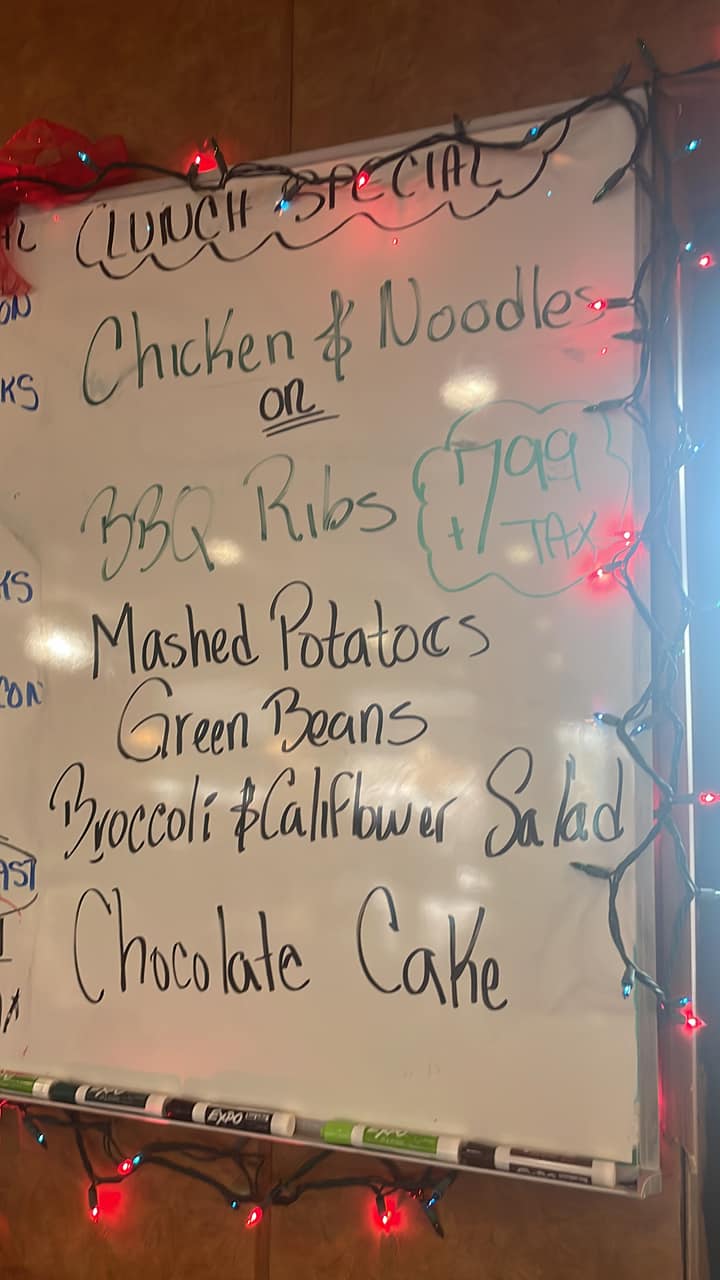 LUNCH SPECIAL
Chicken & Noodles
OR
BBQ Ribs
7.99
+ TAX
Mashed Potatoes
Green Beans
Broccoli & Califlower Salad
Chocolate Cake
KS
KS
CON
AST
EXPO